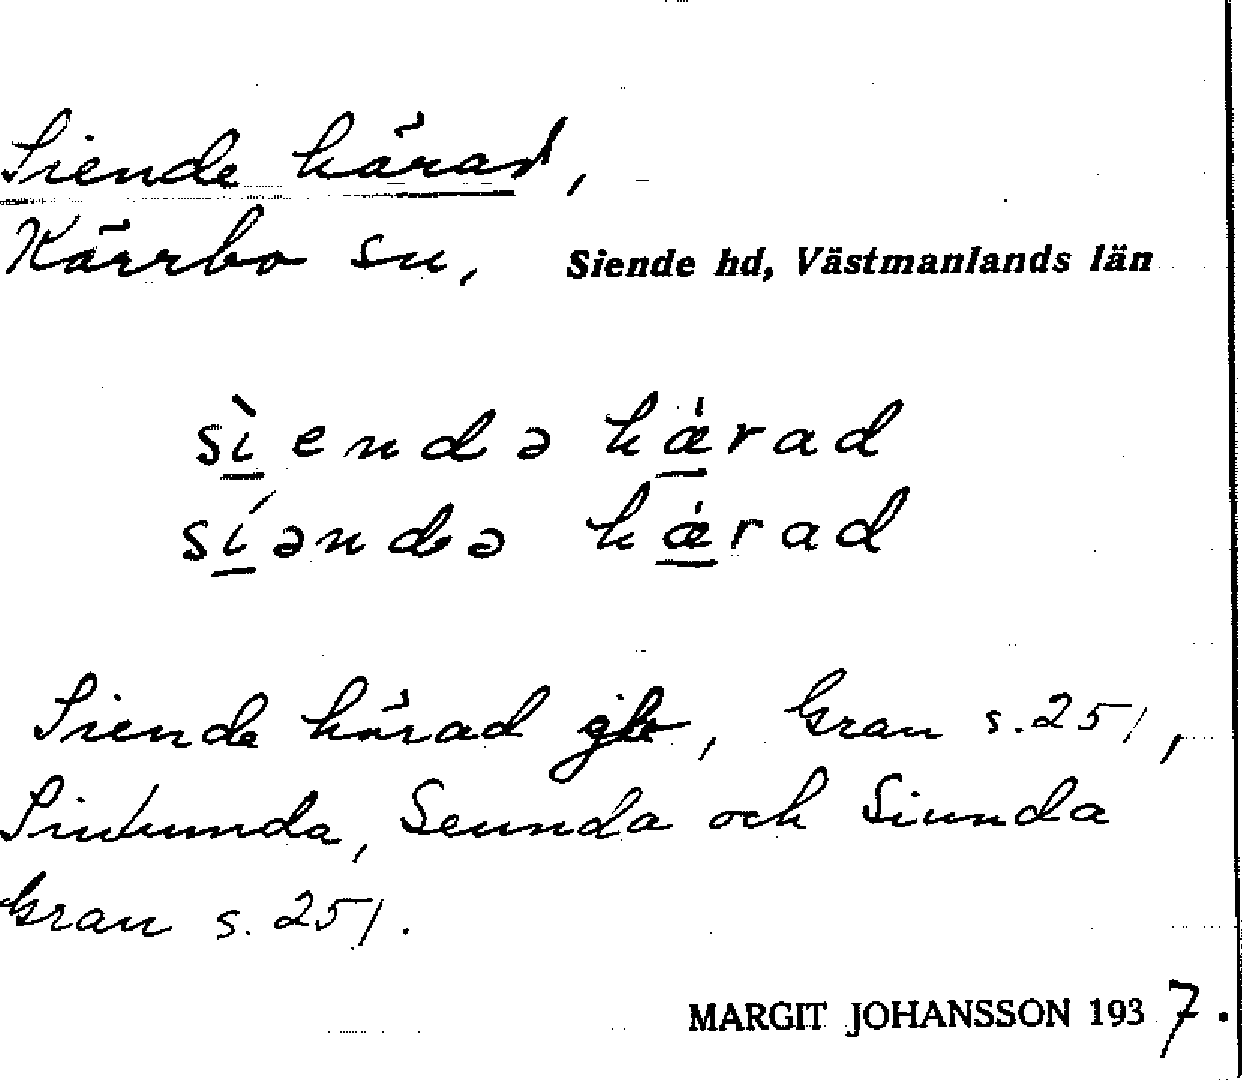 Siende härad,
Kärrbo sn, Siende hd, Västmanlands län
sìendə hǽrad
síəndə hǽrad
Siende härad gk, Gran s. 251,
Sidunda, Seunda och Siunda
Gran s. 251.
MARGIT JOHANSSON 1937.